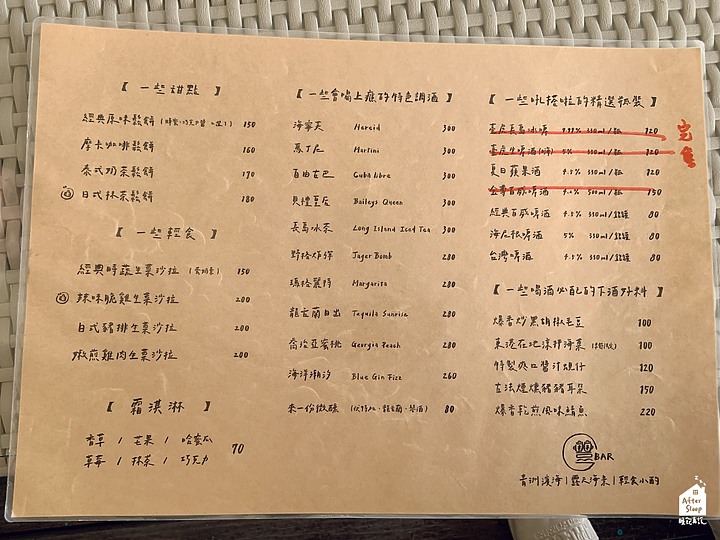 【 一些甜點 】
經典原味鬆餅 150
摩卡咖啡鬆餅 160
泰式奶茶鬆餅 170
日式抹茶鬆餅 180
【 一些輕食 】
經典時蔬生菜沙拉 150
辣味脆雞生菜沙拉 200
日式豬排生菜沙拉 200
嫩煎雞肉生菜沙拉 200
【 霜淇淋 】
香草 / 芒果 / 哈蜜瓜
草莓 / 抹茶 / 巧克力
70
【 一些會喝上癮的特色調酒 】
海寧芙 Hareid 300
馬丁尼 Martini 300
自由古巴 Cuba libre 300
貝禮皇后 Baileys Queen 300
長島冰茶 Long Island Iced Tea 300
野格炸彈 Jager Bomb 280
瑪格麗特 Margarita 280
龍舌蘭日出 Tequila Sunrise 280
喬治亞蜜桃 Georgia Peach 280
海洋潮汐 Blue Gin Fizz 260
來一份微醺 (伏特加、龍舌蘭、琴酒) 80
【 一些吼搭啦的精選瓶裝 】
完售
120
5% 330ml/瓶 120
夏日蘋果酒 4.5% 330ml/瓶 120
金尊百威啤酒 330ml/瓶 150
經典百威啤酒 330ml/鋁罐 80
海尼根啤酒 5% 330ml/鋁罐 80
台灣啤酒 4.5% 330ml/鋁罐 80
【 一些喝酒必配的下酒好料 】
爆香炒黑胡椒毛豆 100
東港在地涼拌海菜 100
特製爽口醬汁蜆仔 120
古法煙燻豬豬耳朵 150
爆香乾煎風味鯖魚 220
BAR
青洲濱海 | 露天海景 | 輕食小酌
After
Sleep
睡記氣氛